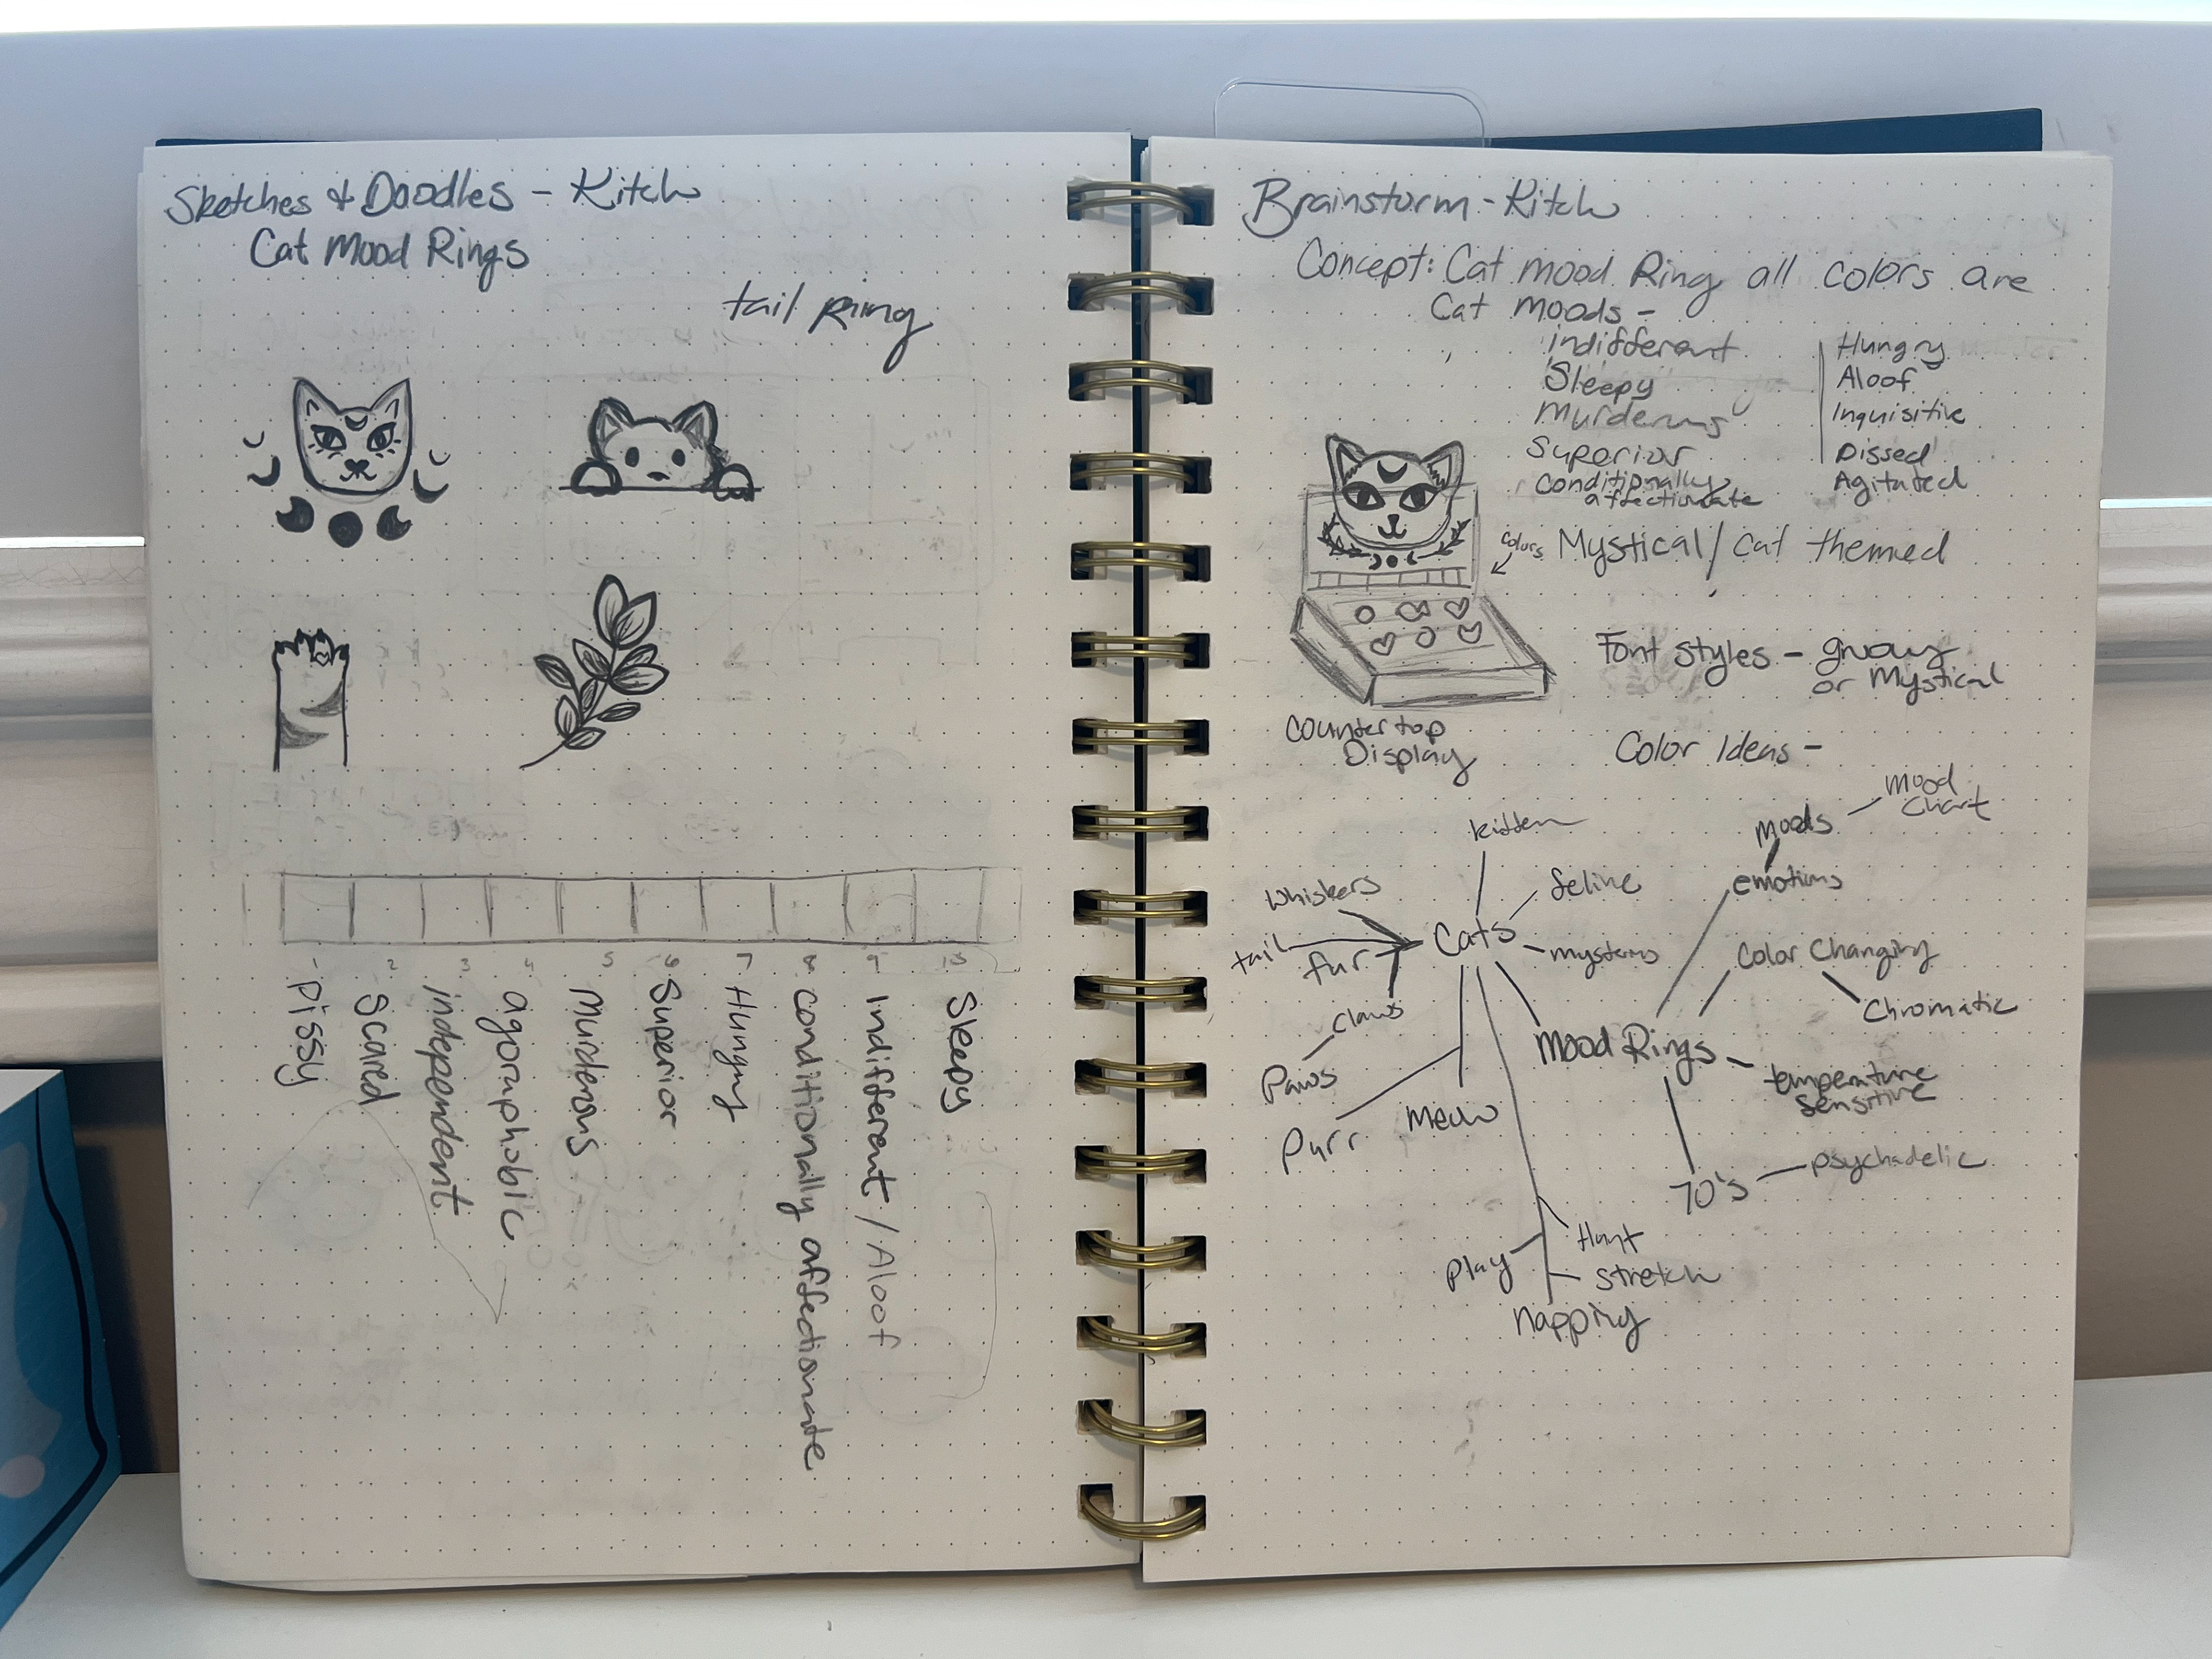 Sketches & Doodles - Kitch
Cat Mood Rings
tail Ring
1 2 3 4 5 6 7 8 9 10
Pissy
Scared
independent
agoraphobic
Murderous
Superior
Hungry
conditionally affectionate
Indifferent / Aloof
Sleepy
Brainstorm - Kitch
Concept: Cat mood Ring all colors are
Cat moods -
indifferent
Sleepy
Murderous
Superior
Conditionally
affectionate
Hungry
Aloof
Inquisitive
Pissed
Agitated
colors
Mystical / Cat themed
Font styles - groovy
or Mystical
Countertop
Display
Color Ideas -
mood
chart
moods
emotions
kitten
feline
Whiskers
Cats
tail
fur
mysterious
Color Changing
Chromatic
claws
Paws
Mood Rings
temperature
Sensitive
Meow
Purr
70's
psychadelic
Hunt
Play
stretch
Napping